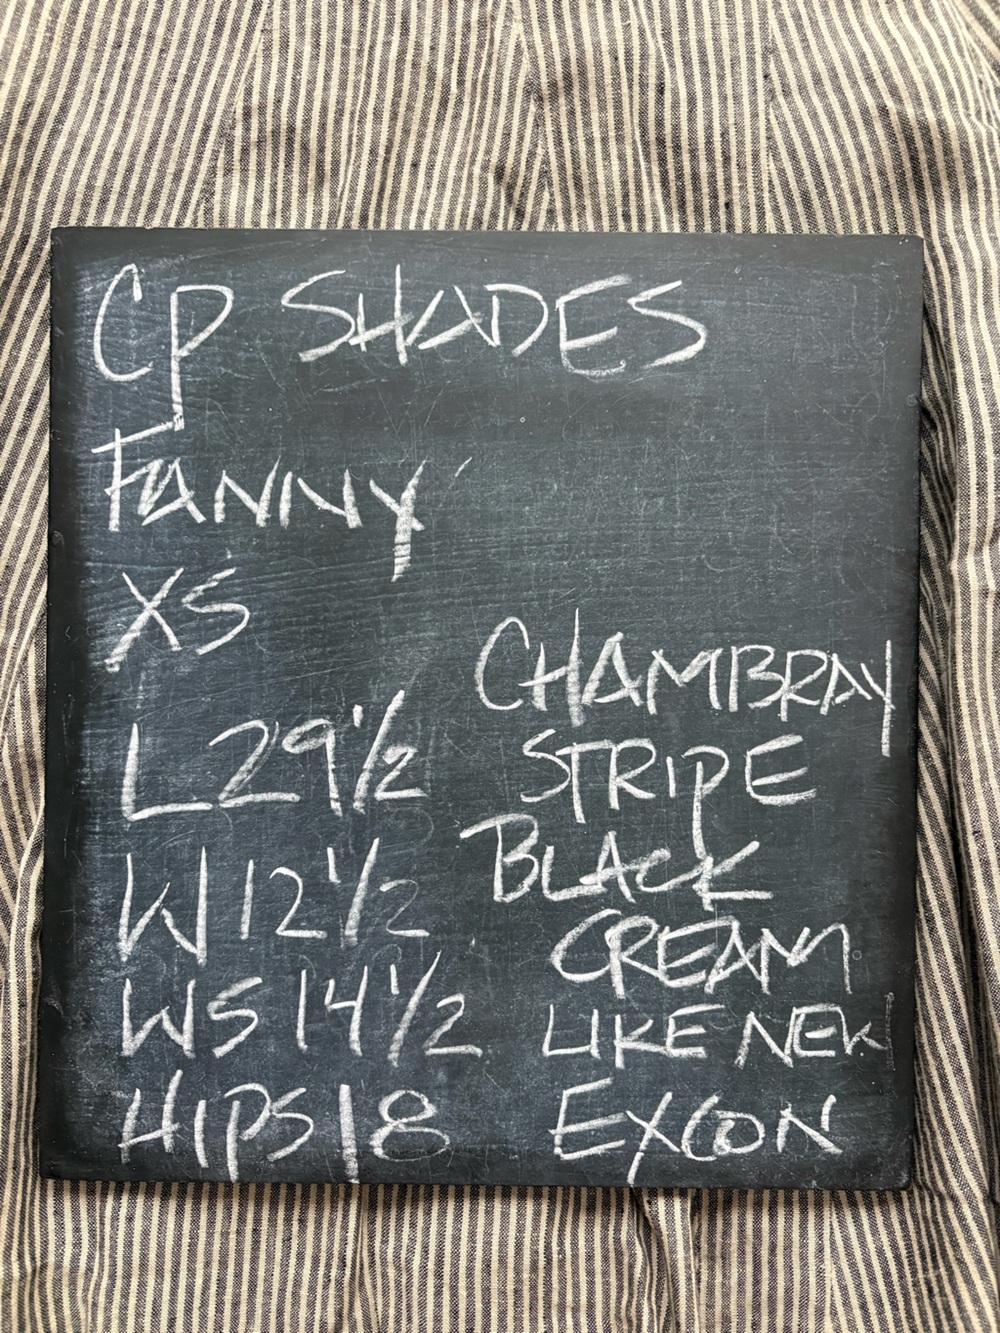 CP SHADES
FANNY
XS
L 29 1/2
W 12 1/2
WS 14 1/2
HIPS 18
CHAMBRAY
STRIPE
BLACK
CREAM
LIKE NEW
EXCON